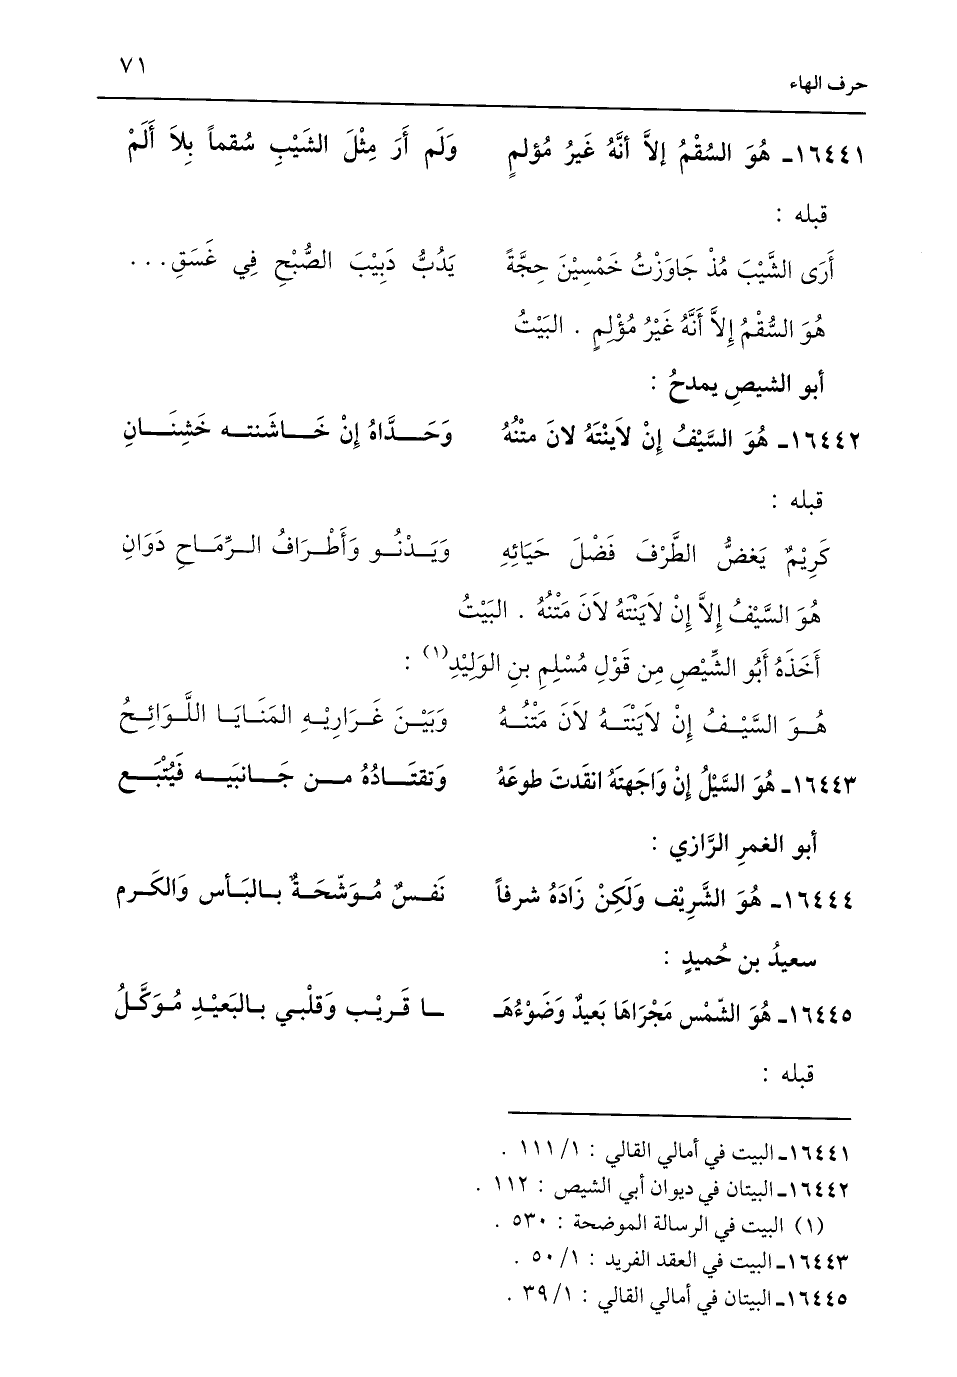 ٧١
حرف الهاء
١٦٤٤١ـ هُوَ السُقْمُ إلاَّ أنَّهُ غَيرُ مُؤلمٍ وَلَم أَرَ مِثْلَ الشَيْبِ سُقماً بِلاَ أَلَمْ
قبله :
أَرَى الشَّيْبَ مُذْ جَاوَزْتُ خَمْسِيْنَ حِجَّةً يَدُبُّ دَبِيْبَ الصُّبْحِ فِي غَسَقِ...
هُوَ السُّقْمُ إِلاَّ أَنَّهُ غَيْرُ مُؤْلِمٍ . البَيْتُ
أبو الشيصِ يمدحُ :
١٦٤٤٢ـ هُوَ السَّيْفُ إنْ لاَينْتَهُ لانَ متْنُهُ وَحَـــدَّاهُ إنْ خَـــاشَنتـــه خَشِنَـــانِ
قبله :
كَرِيْمٌ يَغضُّ الطَّرْفَ فَضْلَ حَيَائِهِ وَيَـدْنُـو وَأَطْـرَافُ الـرِّمَـاحِ دَوَانِ
هُوَ السَّيْفُ إِلاَّ إِنْ لاَيَنْتَهُ لاَنَ مَتْنُهُ . البَيْتُ
أَخَذَهُ أَبُو الشِّيْصِ مِن قَوْلِ مُسْلِمِ بنِ الوَلِيْدِ(١) :
هُـوَ السَّيْـفُ إِنْ لاَيَنْتَـهُ لاَنَ مَتْنُـهُ وَبَيْـنَ غَـرَارِيْـهِ المَنَـايَـا اللَّـوَائِـحُ
١٦٤٤٣ـ هُوَ السَّيْلُ إنْ وَاجَهتَهُ انقَدتَ طوعَهُ وَتقتَـادُهُ مـن جَـانبَيـه فَيُتْبَـع
أبو الغمرِ الرَّازي :
١٦٤٤٤ـ هُوَ الشَّرِيْف وَلَكِنْ زَادَهُ شرفاً نَفسٌ مُـوَشّحَـةٌ بـالبَـأس وَالكَـرم
سعيدُ بن حُميدٍ :
١٦٤٤٥ـ هُوَ الشّمْس مَجْرَاهَا بَعيدٌ وَضَوْءُهَـ ـا قَـريْـب وَقلْبـي بـالبَعيْـدِ مُـوَكَّـلُ
قبله :
١٦٤٤١ـ البيت في أمالي القالي : ١/ ١١١ .
١٦٤٤٢ـ البيتان في ديوان أبي الشيص : ١١٢ .
(١) البيت في الرسالة الموضحة : ٥٣٠ .
١٦٤٤٣ـ البيت في العقد الفريد : ١/ ٥٠ .
١٦٤٤٥ـ البيتان في أمالي القالي : ١/ ٣٩ .